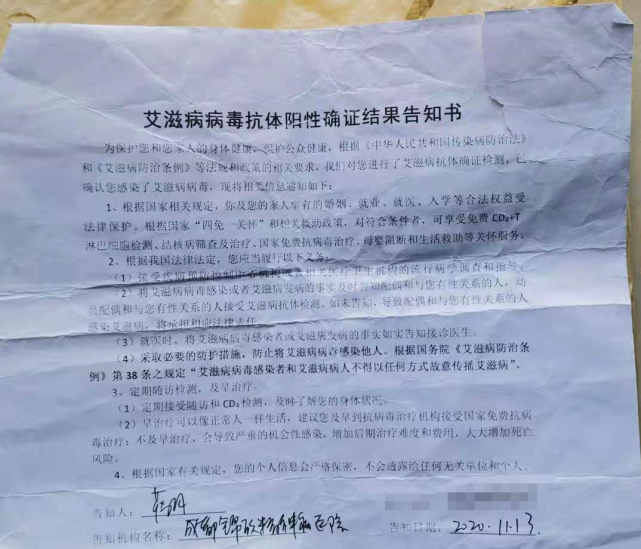 艾滋病病毒抗体阳性确证结果告知书
为保护您和您家人的身体健康，保护公众健康，根据《中华人民共和国传染病防治法》
和《艾滋病防治条例》等法规和政策的相关要求，我们对您进行了艾滋病抗体确证检测，已
确认您感染了艾滋病病毒，现将相关信息通知如下：
1、根据国家相关规定，你及您的家人享有的婚姻、就业、就医、入学等合法权益受
法律保护。根据国家“四免一关怀”和相关救助政策，对符合条件者，可享受免费 CD₄+T
淋巴细胞检测、结核病筛查及治疗、国家免费抗病毒治疗、母婴阻断和生活救助等关怀服务。
2、根据我国法律法定，您应当履行以下义务：
（1）接受疾病预防控制中心机构或其相关医疗卫生机构的流行病学调查和指导。
（2）将艾滋病病毒感染或者艾滋病发病的事实及时告知配偶和与您有性关系的人，动
员配偶和与您有性关系的人接受艾滋病抗体检测。如未告知，导致配偶和与您有性关系的人
感染艾滋病，将承担相应法律责任。
（3）就医时，将艾滋病病毒感染者或艾滋病发病的事实如实告知接诊医生。
（4）采取必要的防护措施，防止将艾滋病病毒感染他人。根据国务院《艾滋病防治条
例》第 38 条之规定“艾滋病病毒感染者和艾滋病病人不得以任何方式故意传播艾滋病”。
3、定期随访检测，及早治疗。
（1）定期接受随访和 CD₄检测，及时了解您的身体状况。
（2）早治疗可以像正常人一样生活，建议您及早到抗病毒治疗机构接受国家免费抗病
毒治疗；不及早治疗，会导致严重的机会性感染，增加后期治疗难度和费用，大大增加死亡
风险。
4、根据国家有关规定，您的个人信息会严格保密，不会透露给任何无关单位和个人。
告知人：
告知机构名称：成都锦欣精神病医院 告知日期：2020.11.13